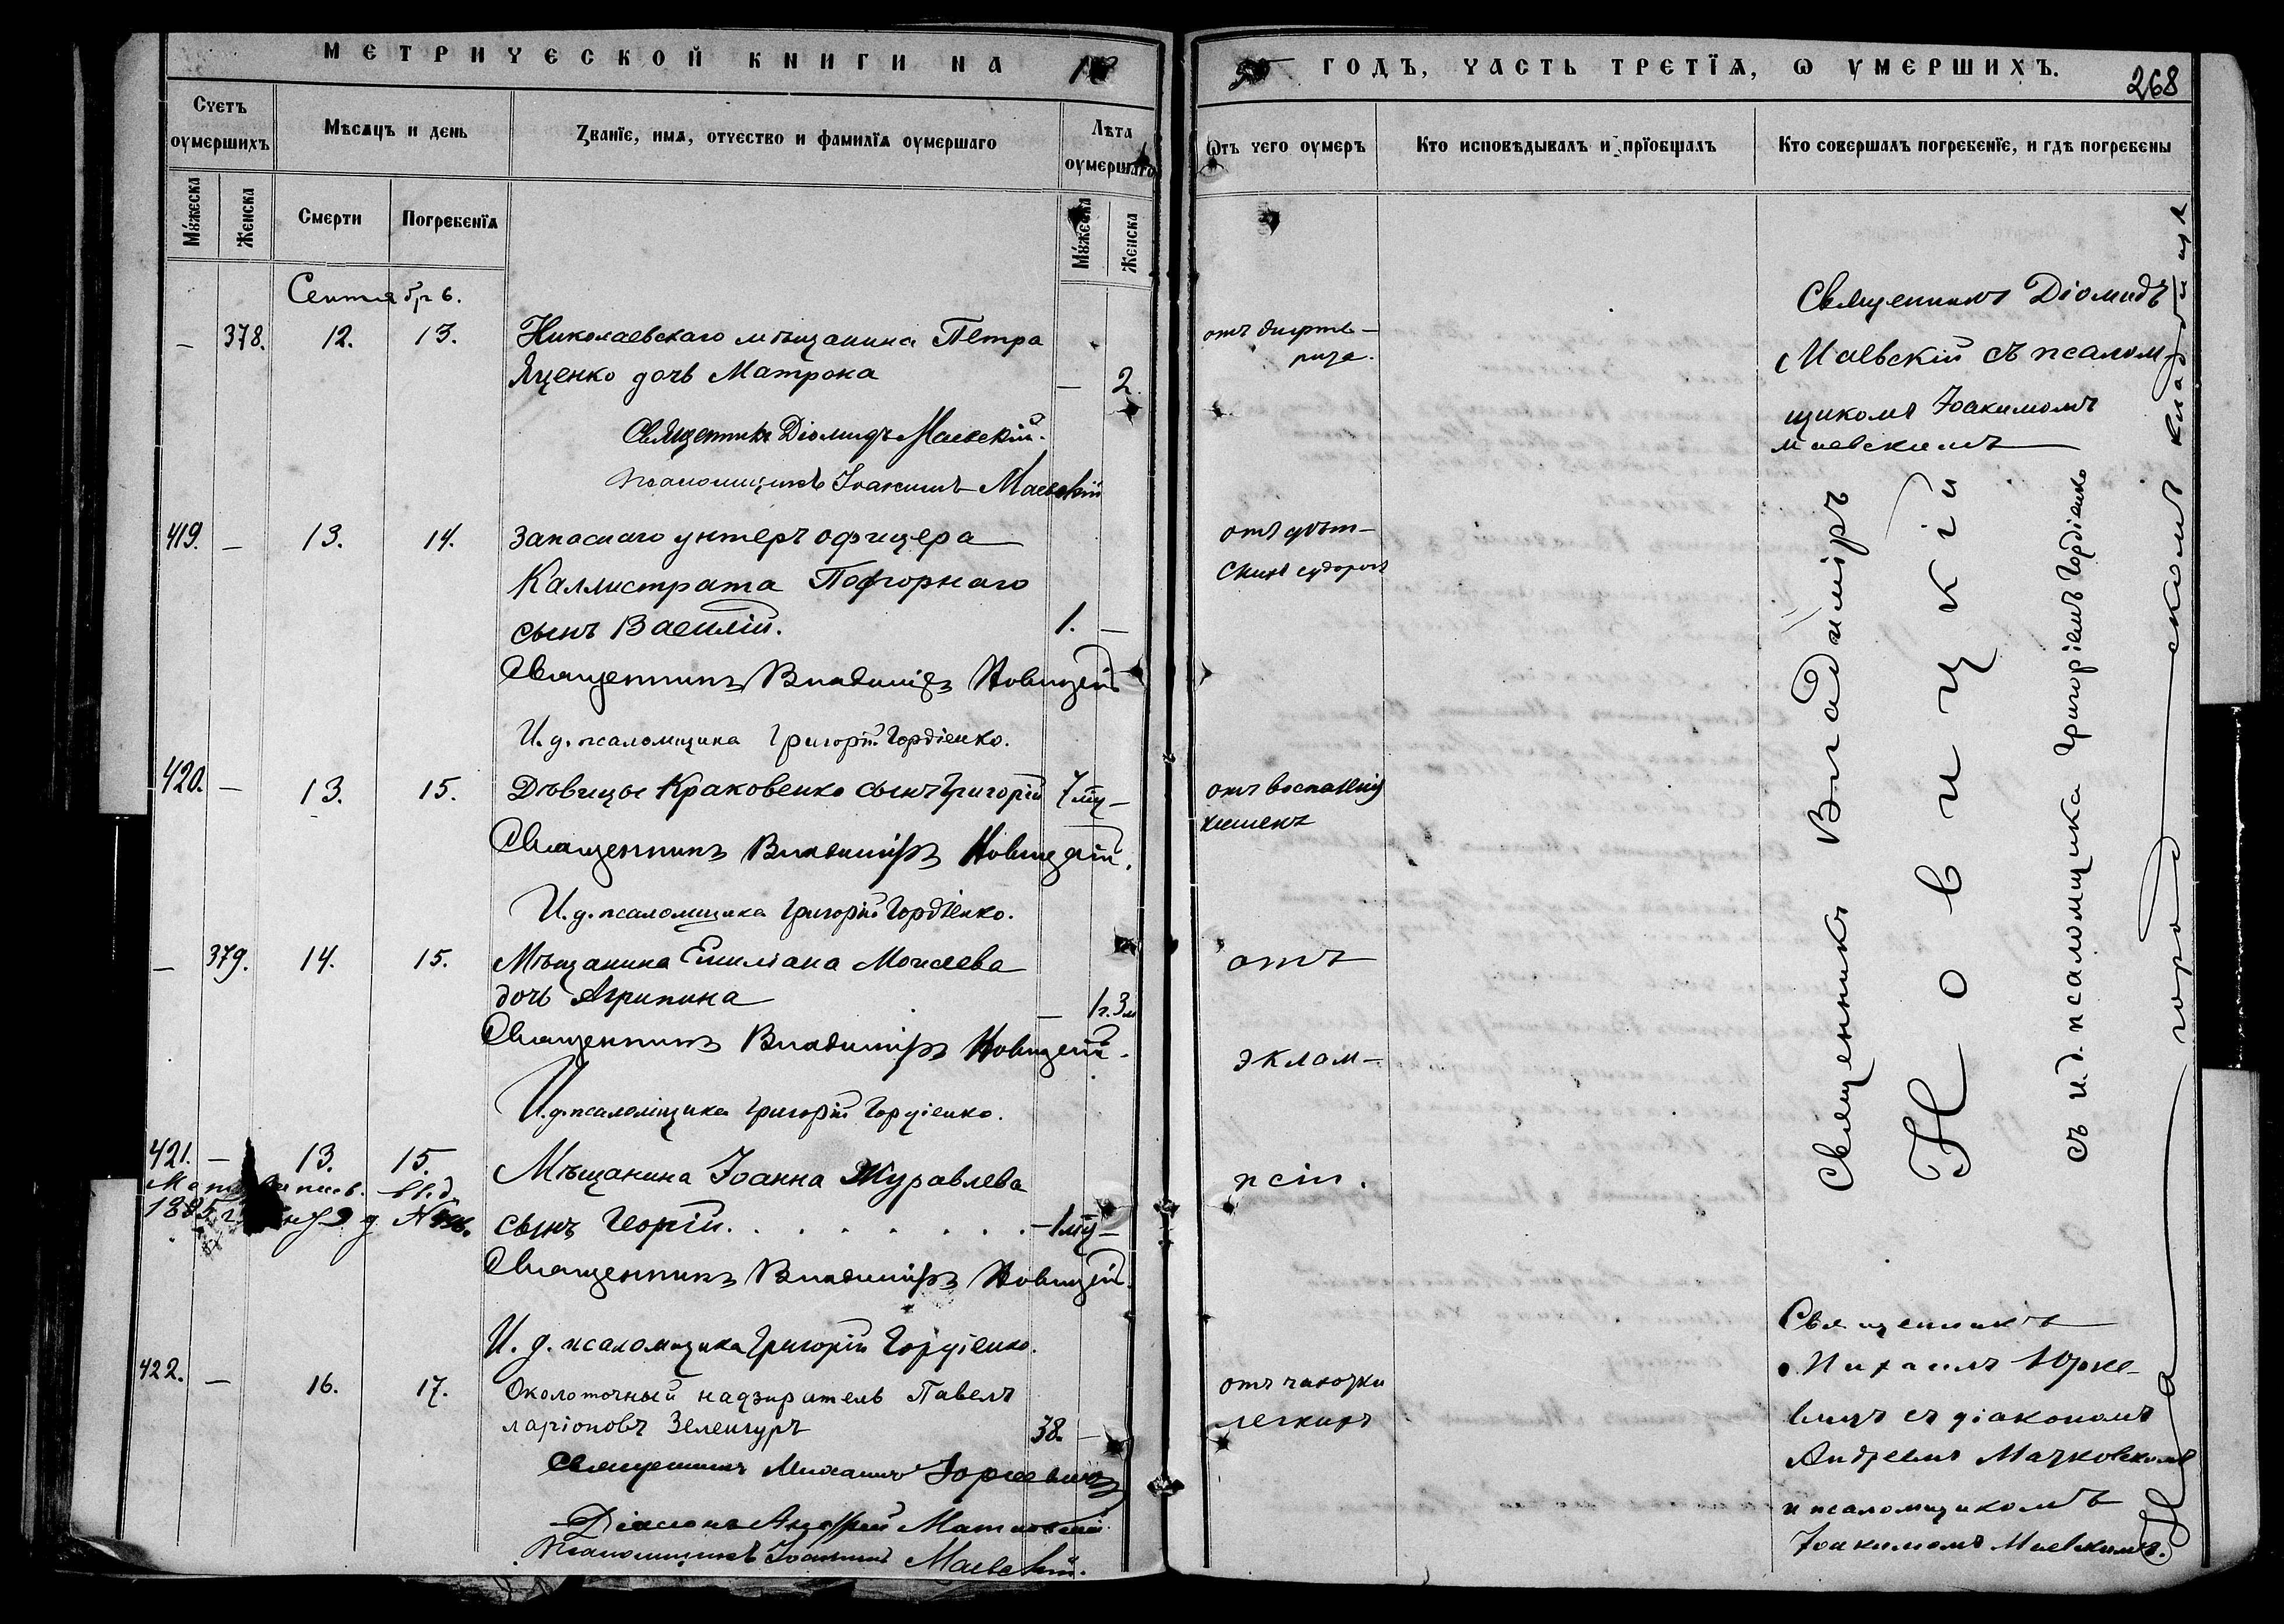 МЕТРИЧЕСКОЙ КНИГИ НА 18
Счетъ оумершихъ
Мѣсяцъ и день
Званіе, имя, отчество и фамилія оумершаго
Лѣта оумершаго
Мужеска
Женска
Смерти
Погребенія
Мужеска
Женска
Сентябрь.
— 378. 12. 13. Николаевскаго мѣщанина Петра
Яценко дочь Матрона — 2
Священникъ Діомидъ Маевскій.
Псаломщикъ Іоакимъ Маевскій
419. — 13. 14. Запаснаго унтеръ офицера
Каллистрата Погорнаго
сынъ Василій. 1. —
Священникъ Владиміръ Новицкій
И. д. псаломщика Григорій Гордіенко.
420. — 13. 15. Дѣвицы Краковенко сынъ Григорій 7 мц —
Священникъ Владиміръ Новицкій.
И. д. псаломщика Григорій Гордіенко.
— 379. 14. 15. Мѣщанина Емиліана Моисеева
дочь Агрипина — 1 г. 3 м
Священникъ Владиміръ Новицкій.
И. д. псаломщика Григорій Гордіенко.
421. — 13. 15. Мѣщанина Іоанна Журавлева
сынъ Георгій. 1 мц —
Священникъ Владиміръ Новицкій.
И. д. псаломщика Григорій Гордіенко.
422. — 16. 17. Околоточный надзиратель Павелъ
Ларіоновъ Зеленчуръ 38. —
Священникъ Михаилъ Юркевичъ
Діаконъ Андрей Мачковскій
Псаломщикъ Іоакимъ Маевскій.
95 ГОДЪ, ЧАСТЬ ТРЕТІЯ, Ѡ УМЕРШИХЪ.
268
Ѿтъ чего оумеръ
Кто исповѣдывалъ и пріобщалъ
Кто совершалъ погребеніе, и гдѣ погребены
отъ дифте-
рита.
отъ дѣт-
скихъ судорогъ
отъ воспаленія
кишекъ
отъ
эклам-
псіи.
отъ чахотки
легкихъ
Священникъ Діомидъ
Маевскій съ псалом-
щикомъ Іоакимомъ
Маевскимъ
Священникъ Владиміръ
Новицкій
съ и. д. псаломщика Григоріемъ Гордіенко
На городскомъ кладбищѣ
Священникъ
Михаилъ Юрке-
вичъ съ діакономъ
Андреемъ Мачковскимъ
и псаломщикомъ
Іоакимомъ Маевскимъ.